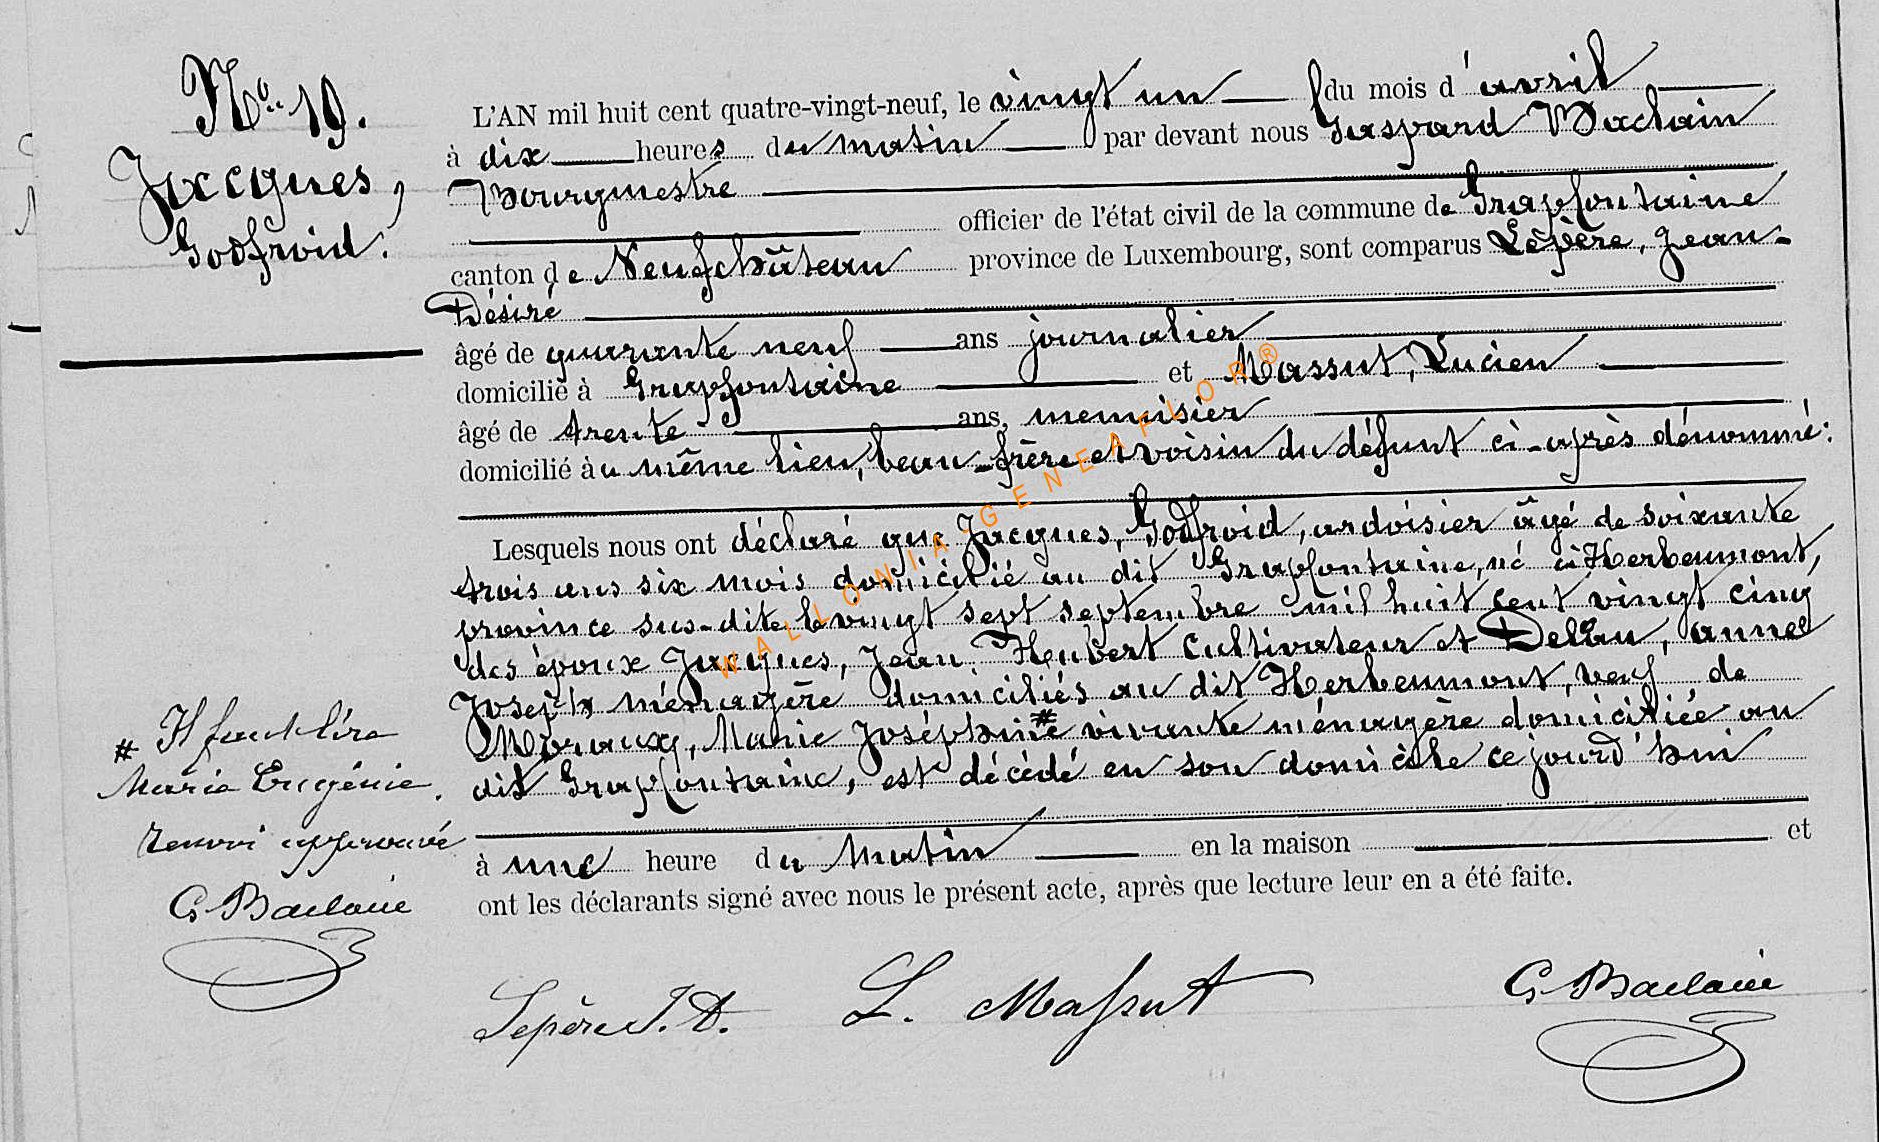 No 19.
Jacques,
Godfroid.
L'AN mil huit cent quatre-vingt-neuf, le vingt un du mois d'avril
à dix heures du matin par devant nous Gaspard Baclain
Bourgmestre
officier de l'état civil de la commune de Grapfontaine
canton de Neufchâteau province de Luxembourg, sont comparus Lepère, Jean-
Désiré
âgé de quarante neuf ans journalier
domicilié à Grapfontaine et Massut, Lucien
âgé de trente ans, menuisier
domicilié au même lieu, beau-frère et voisin du défunt ci-après dénommé:
Lesquels nous ont déclaré que Jacques, Godfroid, ardoisier âgé de soixante
trois ans six mois domicilié au dit Grapfontaine, né à Herbeumont,
province sus-dite le vingt sept septembre mil huit cent vingt cinq
des époux Jacques, Jean, Hubert cultivateur et Delau, anne
Joseph ménagère domiciliés au dit Herbeumont, veuf de
Moraux, Marie Joséphine # vivante ménagère domiciliée au
dit Grapfontaine, est décédé en son domicile ce jourd'hui
à une heure du matin en la maison et
ont les déclarants signé avec nous le présent acte, après que lecture leur en a été faite.
# Il faut lire
Marie Eugénie.
renvoi approuvé
G. Baclain
Lepère J. D. L. Massut G. Baclain
WALLONIA GENEAFLOR ®